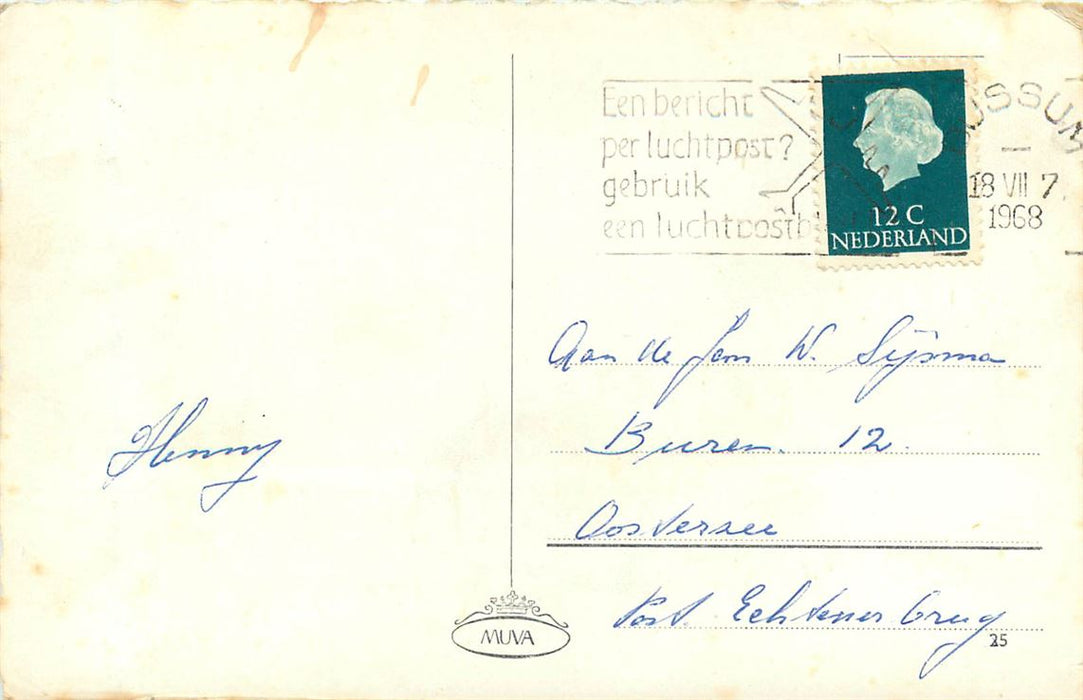 Een bericht
per luchtpost?
gebruik
een luchtpostb
BUSSUM
18 VII 7
1968
12 C
NEDERLAND
Aan de fam W. Sijsma
Buren 12.
Oosterzee
Post Echtenerbrug
Henny
MUVA
25